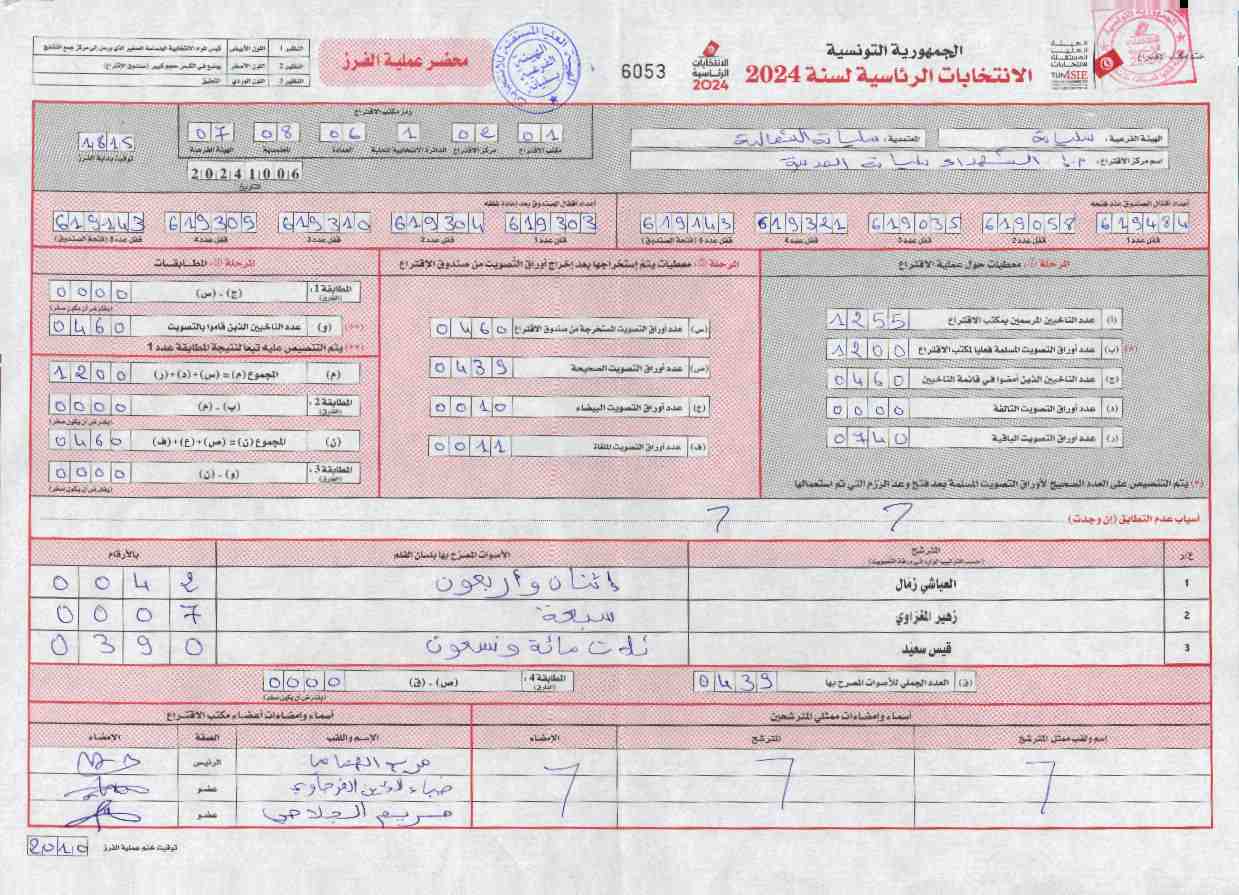 الجمهورية التونسية
الانتخابات الرئاسية لسنة 2024
الهيئة العليا المستقلة للانتخابات
TUNISIE
الانتخابات الرئاسية 2024
6053
محضر عملية الفرز
النظير 1 اللون الأبيض
النظير 2 اللون الأصفر
النظير 3 اللون الوردي التعليق
ختم مكتب الاقتراع
الهيئة الفرعية : سليانة
المعتمدية : سليانة الشمالية
اسم مركز الاقتراع : م.إ. الشهداء سليانة المدينة
رمز مكتب الاقتراع
01 02 1 06 08 07
مكتب الاقتراع مركز الاقتراع الدائرة الانتخابية المحلية العمادة المعتمدية الهيئة الفرعية
20241006
التاريخ
1815
توقيت بداية الفرز
أعداد أقفال الصندوق عند فتحه
619484 619058 619035 619321 619143
قفل عدد 1 قفل عدد 2 قفل عدد 3 قفل عدد 4 قفل عدد 5 (فتحة الصندوق)
أعداد أقفال الصندوق بعد إعادة غلقه
619303 619304 619310 619309 619143
قفل عدد 1 قفل عدد 2 قفل عدد 3 قفل عدد 4 قفل عدد 5 (فتحة الصندوق)
المرحلة 1: معطيات حول عملية الاقتراع
(أ) عدد الناخبين المرسمين بمكتب الاقتراع 1255
(*) (ب) عدد أوراق التصويت المسلمة فعليا لمكتب الاقتراع 1200
(ج) عدد الناخبين الذين أمضوا في قائمة الناخبين 0460
(د) عدد أوراق التصويت التالفة 0000
(ر) عدد أوراق التصويت الباقية 0740
(*) يتم التنصيص على العدد الصحيح لأوراق التصويت المسلمة بعد فتح وعد الرزم التي تم استعمالها
المرحلة 2: معطيات يتم إستخراجها بعد إخراج أوراق التصويت من صندوق الاقتراع
(س) عدد أوراق التصويت المستخرجة من صندوق الاقتراع 0460
(ص) عدد أوراق التصويت الصحيحة 0439
(ع) عدد أوراق التصويت البيضاء 0010
(ف) عدد أوراق التصويت الملغاة 0011
المرحلة 3: المطابقات
المطابقة 1: (الفارق) (ج) - (س) 0000
(يفترض أن يكون صفر)
(**) (و) عدد الناخبين الذين قاموا بالتصويت 0460
(**) يتم التنصيص عليه تبعا لنتيجة المطابقة عدد 1
(م) المجموع (م) = (س)+(د)+(ر) 1200
المطابقة 2: (الفارق) (ب) - (م) 0000
(يفترض أن يكون صفر)
(ن) المجموع (ن) = (ص)+(ع)+(ف) 0460
المطابقة 3: (الفارق) (و) - (ن) 0000
(يفترض أن يكون صفر)
أسباب عدم التطابق (إن وجدت)
ع/ر المترشح الأصوات المصرح بها بلسان القلم بالأرقام
(حسب الترتيب الوارد في ورقة التصويت)
1 العياشي زمال إثنان وأربعون 0042
2 زهير المغزاوي سبعة 0007
3 قيس سعيد ثلاث مائة وتسعون 0390
(ق) العدد الجملي للأصوات المصرح بها 0439
المطابقة 4: (الفارق) (ص) - (ق) 0000
(يفترض أن يكون صفر)
أسماء وإمضاءات ممثلي المترشحين
اسم ولقب ممثل المترشح المترشح الإمضاء
أسماء وإمضاءات أعضاء مكتب الاقتراع
الإسم واللقب الصفة الإمضاء
الرئيس
ضياء الدين الفرجاوي عضو
مريم الجلاصي عضو
2010 توقيت ختم عملية الفرز